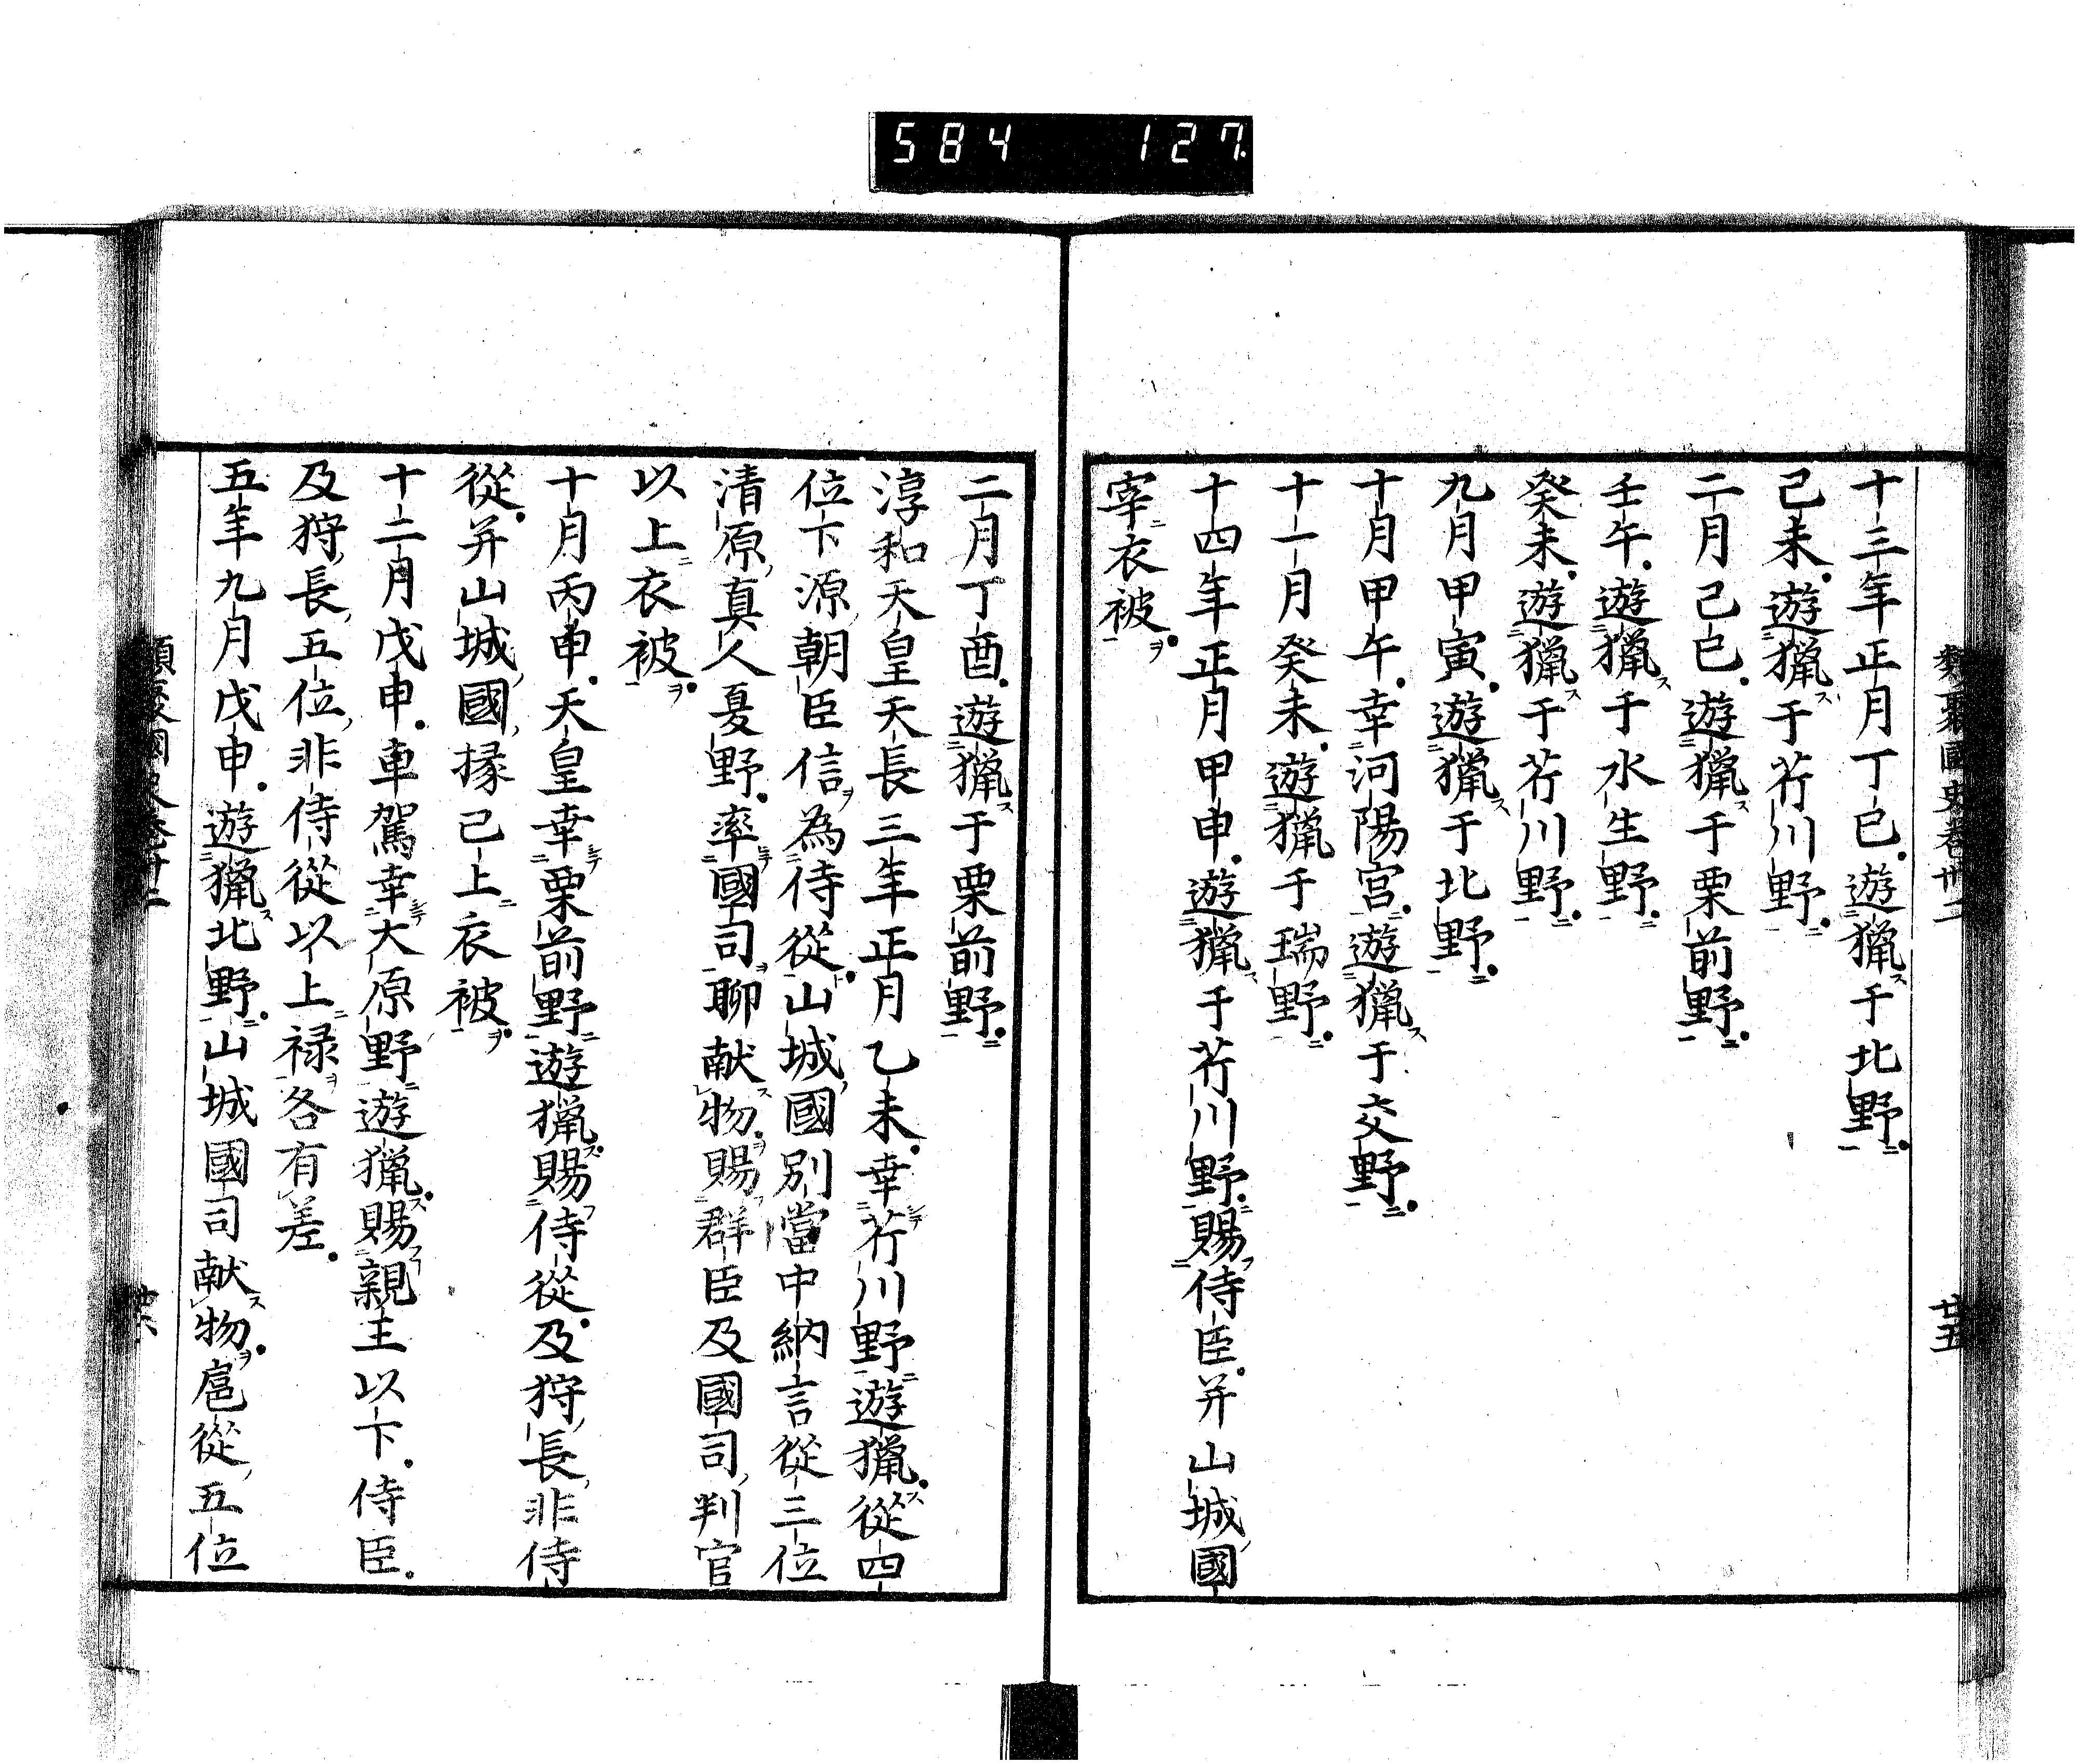 584 127
類聚國史卷卅二
廿五
十三年正月丁巳遊獵于北野
己未遊獵于荇川野
二月己巳遊獵于栗前野
壬午遊獵于水生野
癸未遊獵于荇川野
九月甲寅遊獵于北野
十月甲午幸河陽宮遊獵于交野
十一月癸未遊獵于瑞野
十四年正月甲申遊獵于荇川野賜侍臣并山城國
宰衣被
二月丁酉遊獵于栗前野
淳和天皇天長三年正月乙未幸荇川野遊獵從四
位下源朝臣信為侍從山城國別當中納言從三位
清原真人夏野率國司聊献物賜群臣及國司判官
以上衣被
十月丙申天皇幸栗前野遊獵賜侍從及狩長非侍
從并山城國掾己上衣被
十二月戊申車駕幸大原野遊獵賜親王以下侍臣
及狩長五位非侍從以上禄各有差
五年九月戊申遊獵北野山城國司献物扈從五位
類聚國史卷卅二